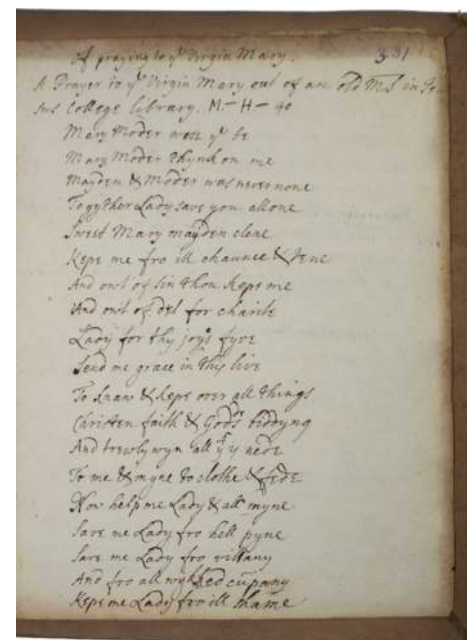 Of praying to yͤ Virgin Mary. 331
A Prayer to yͤ Virgin Mary out of an old MS in Je-
sus College Library. M-H-40
Mary Moder well yͧ be
Mary Moder thynk on me
Mayden & Moder was never none
Togyther Lady save you allone
Sweet Mary mayden clene
Kepe me fro ill chaunce & tene
And owt of sin thou kepe me
And owt of det for charite
Lady for thy joys fyve
Send me grace in this live
To knaw & kepe over all things
Christen faith & Gods biddyng
And trewly wyn all yͭ y nede
To me & myne to clothe & fede
Now help me Lady & all myne
Save me Lady fro hell pyne
Save me Lady fro villany
And fro all wykked cupany
Kepe me Lady fro ill shame